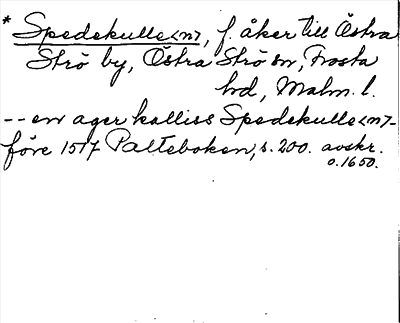 * Spedekulle<n>, f. åker till Östra
Strö by, Östra Strö sn, Frosta
hd, Malm. l.
-- en ager kalliss Spedekulle<n>-
före 1517 Palteboken, s. 200. avskr.
o. 1650.